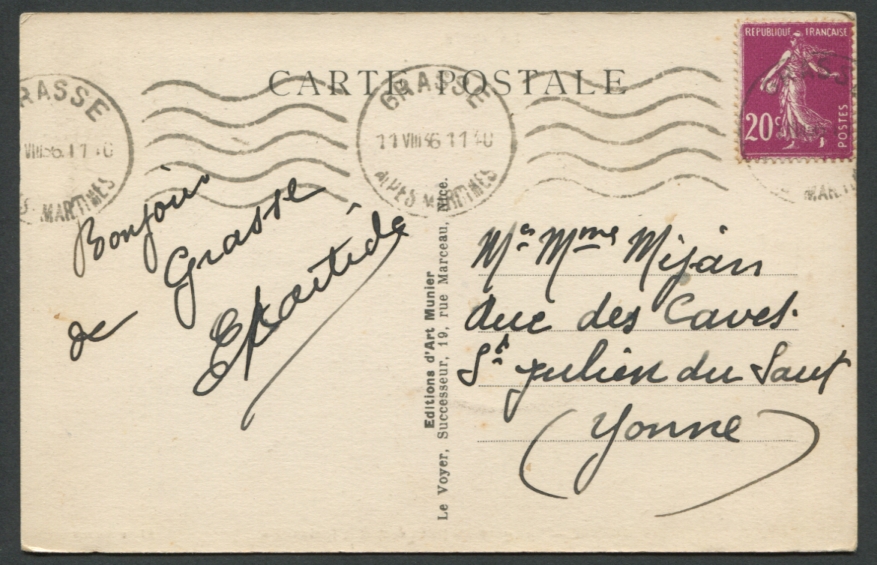 CARTE POSTALE
REPUBLIQUE FRANÇAISE
20c
POSTES
GRASSE
VIII 36. 11 40
MARITIMES
GRASSE
11 VIII 36. 11 40
ALPES MARITIMES
MARITI
Bonjour
de Grasse
Editions d'Art Munier
Le Voyer, Successeur, 19, rue Marceau, Nice.
Mr Mme Mijan
rue des Caves.
St Julien du Saut
(Yonne)